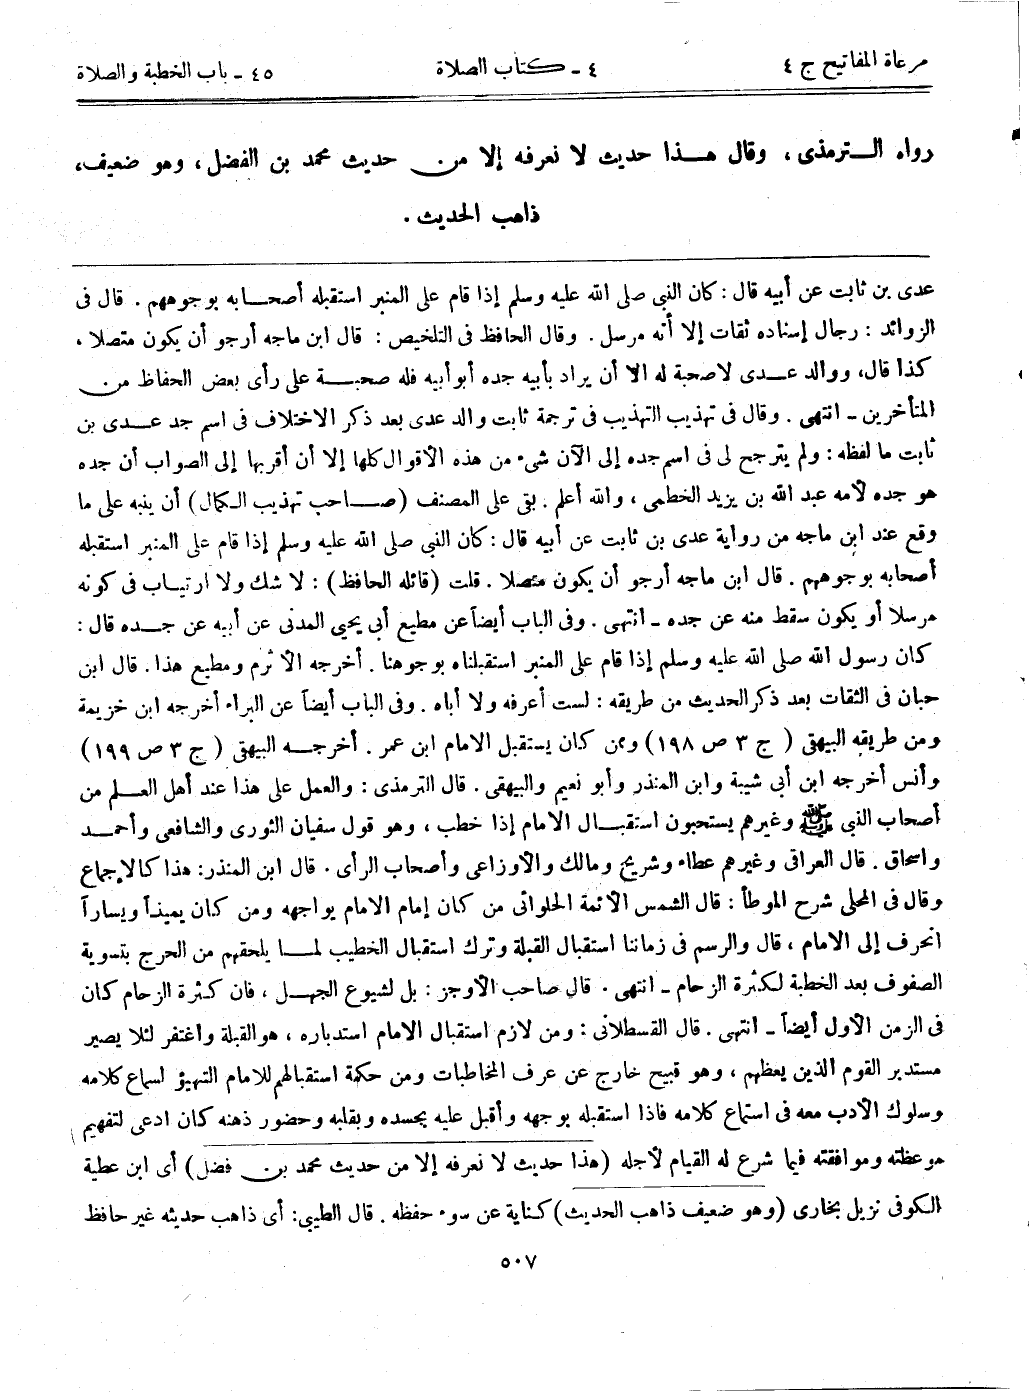 مرعاة المفاتيح ج ٤ ٤ ـ كتاب الصلاة ٤٥ ـ باب الخطبة والصلاة
رواه الترمذى ، وقال هذا حديث لا نعرفه إلا من حديث محمد بن الفضل ، وهو ضعيف ،
ذاهب الحديث .
عدى بن ثابت عن أبيه قال : كان النبى صلى الله عليه وسلم إذا قام على المنبر استقبله أصحابه بوجوههم . قال فى
الزوائد : رجال إسناده ثقات إلا أنه مرسل . وقال الحافظ فى التلخيص : قال ابن ماجه أرجو أن يكون متصلا ،
كذا قال ، ووالد عدى لا صحبة له الا أن يراد بأبيه جده أبو أبيه فله صحبة على رأى بعض الحفاظ من
المتأخرين ـ انتهى . وقال فى تهذيب التهذيب فى ترجمة ثابت والد عدى بعد ذكر الاختلاف فى اسم جد عدى بن
ثابت ما لفظه : ولم يترجح لى فى اسم جده إلى الآن شىء من هذه الأقوال كلها إلا أن أقربها إلى الصواب أن جده
هو جده لأمه عبد الله بن يزيد الخطمى ، والله أعلم . بقى على المصنف (صاحب تهذيب الكمال) أن ينبه على ما
وقع عند ابن ماجه من رواية عدى بن ثابت عن أبيه قال : كان النبى صلى الله عليه وسلم إذا قام على المنبر استقبله
أصحابه بوجوههم . قال ابن ماجه أرجو أن يكون متصلا . قلت (قائله الحافظ) : لا شك ولا ارتياب فى كونه
مرسلا أو يكون سقط منه عن جده ـ انتهى . وفى الباب أيضاً عن مطيع أبى يحيى المدنى عن أبيه عن جده قال :
كان رسول الله صلى الله عليه وسلم إذا قام على المنبر استقبلناه بوجوهنا . أخرجه الأثرم ومطيع هذا . قال ابن
حبان فى الثقات بعد ذكر الحديث من طريقه : لست أعرفه ولا أباه . وفى الباب أيضاً عن البراء أخرجه ابن خزيمة
ومن طريقه البيهقى ( ج ٣ ص ١٩٨) وممن كان يستقبل الامام ابن عمر . أخرجه البيهقى ( ج ٣ ص ١٩٩)
وأنس أخرجه ابن أبى شيبة وابن المنذر وأبو نعيم والبيهقى . قال الترمذى : والعمل على هذا عند أهل العلم من
أصحاب النبى ﷺ وغيرهم يستحبون استقبال الامام إذا خطب ، وهو قول سفيان الثورى والشافعى وأحمد
واسحاق . قال العراقى وغيرهم عطاء وشريح ومالك والأوزاعى وأصحاب الرأى . قال ابن المنذر : هذا كالإجماع
وقال فى المحلى شرح الموطأ : قال الشمس الأئمة الحلوانى من كان إمام الامام يواجهه ومن كان يميناً ويساراً
انحرف إلى الامام ، قال والرسم فى زماننا استقبال القبلة وترك استقبال الخطيب لما يلحقهم من الحرج بتسوية
الصفوف بعد الخطبة لكثرة الزحام ـ انتهى . قال صاحب الأوجز : بل لشيوع الجهل ، فان كثرة الزحام كان
فى الزمن الأول أيضاً ـ انتهى . قال القسطلانى : ومن لازم استقبال الامام استدباره ، هو القبلة واغتفر لئلا يصير
مستدبر القوم الذين يعظهم ، وهو قبيح خارج عن عرف المخاطبات ومن حكمة استقبالهم للامام التهيؤ لسماع كلامه
وسلوك الأدب معه فى استماع كلامه فاذا استقبله بوجهه وأقبل عليه بجسده وبقلبه وحضور ذهنه كان ادعى لتفهيم
موعظته وموافقته فيما شرع له القيام لأجله (هذا حديث لا نعرفه إلا من حديث محمد بن فضل) أى ابن عطية
الكوفى نزيل بخارى (وهو ضعيف ذاهب الحديث) كناية عن سوء حفظه . قال الطيبى : أى ذاهب حديثه غير حافظ
٥٠٧